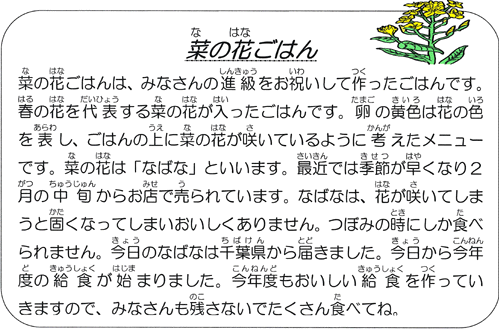 菜の花ごはん
菜の花ごはんは、みなさんの進級をお祝いして作ったごはんです。
春の花を代表する菜の花が入ったごはんです。卵の黄色は花の色
を表し、ごはんの上に菜の花が咲いているように考えたメニュー
です。菜の花は「なばな」といいます。最近では季節が早くなり２
月の中旬からお店で売られています。なばなは、花が咲いてしま
うと固くなってしまいおいしくありません。つぼみの時にしか食べ
られません。今日のなばなは千葉県から届きました。今日から今年
度の給食が始まりました。今年度もおいしい給食を作ってい
きますので、みなさんも残さないでたくさん食べてね。